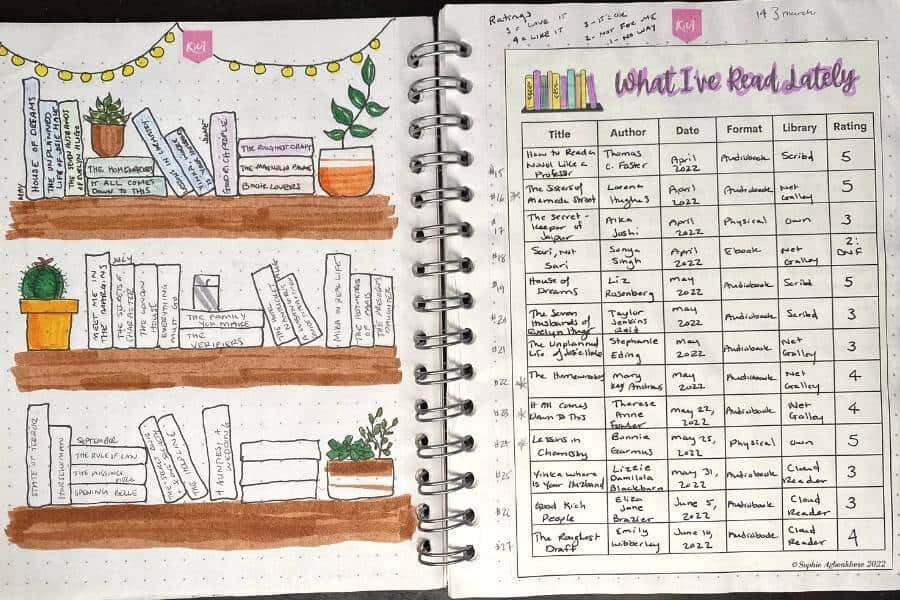 KiVi
MAY
HOUSE OF DREAMS
THE UNPLANNED
LIFE OF JOSIE HALE
THE SEVEN HUSBANDS
OF EVELYN HUGO
THE HOMEWRECKERS
IT ALL COMES
DOWN TO THIS
LESSONS IN CHEMISTRY
JUNE
GOOD RICH PEOPLE
THE ROUGHEST DRAFT
THE MAGNOLIA PALACE
BOOK LOVERS
JULY
MEET ME IN
THE MARGINS
THE SUSPECTS
CHARACTER
THE LONDON
HOUSE
EVERYTHING
MUST GO
THE FAMILY
YOU MAKE
THE
VERIFIERS
MIKA IN REAL LIFE
DAUGHTER
STATE OF TERROR
HORSEWOMAN
SEPTEMBER
THE RULE OF LAW
THE MISSING
PIECE
OPENING BELLE
4 AUNTIES + A
WEDDING
Ratings
5 = LOVE IT
4 = LIKE IT
3 - IT'S OK
2 - NOT FOR ME
1 - NO WAY
KiVi
14 3 march
What I've Read Lately
Title Author Date Format Library Rating
#15 How to Read a Novel Like a Professor Thomas C. Foster April 2022 Audiobook Scribd 5
#16 * The Sisters of Alameda Street Lorena Hughes April 2022 Audiobook Net Galley 5
#17 The Secret-keeper of Jaipur Alka Joshi April 2022 Physical own 3
#18 Sari, not Sari Sonya Singh April 2022 Ebook Net Galley 2: DNF
#19 House of Dreams Liz Rosenberg may 2022 Audiobook Scribd 5
#20 The Seven Husbands of Evelyn Hugo Taylor Jenkins Reid may 2022 Audiobook Scribd 3
#21 The Unplanned Life of Josie Hale Stephanie Eding may 2022 Audiobook Net Galley 3
#22 * The Homewreckers Mary Kay Andrews may 2022 Audiobook Net Galley 4
#23 * It All Comes Down To This Therese Anne Fowler may 22, 2022 Audiobook Net Galley 4
#24 * Lessons in Chemistry Bonnie Garmus may 25, 2022 Physical own 5
#25 Yinka Where is Your Huzband Lizzie Damilola Blackburn may 31, 2022 Audiobook Cloud Reader 3
#26 Good Rich People Eliza Jane Brazier June 5, 2022 Audiobook Cloud Reader 3
#27 The Roughest Draft Emily Wibberley June 10, 2022 Audiobook Cloud Reader 4
© Sophie Agbonkhese 2022